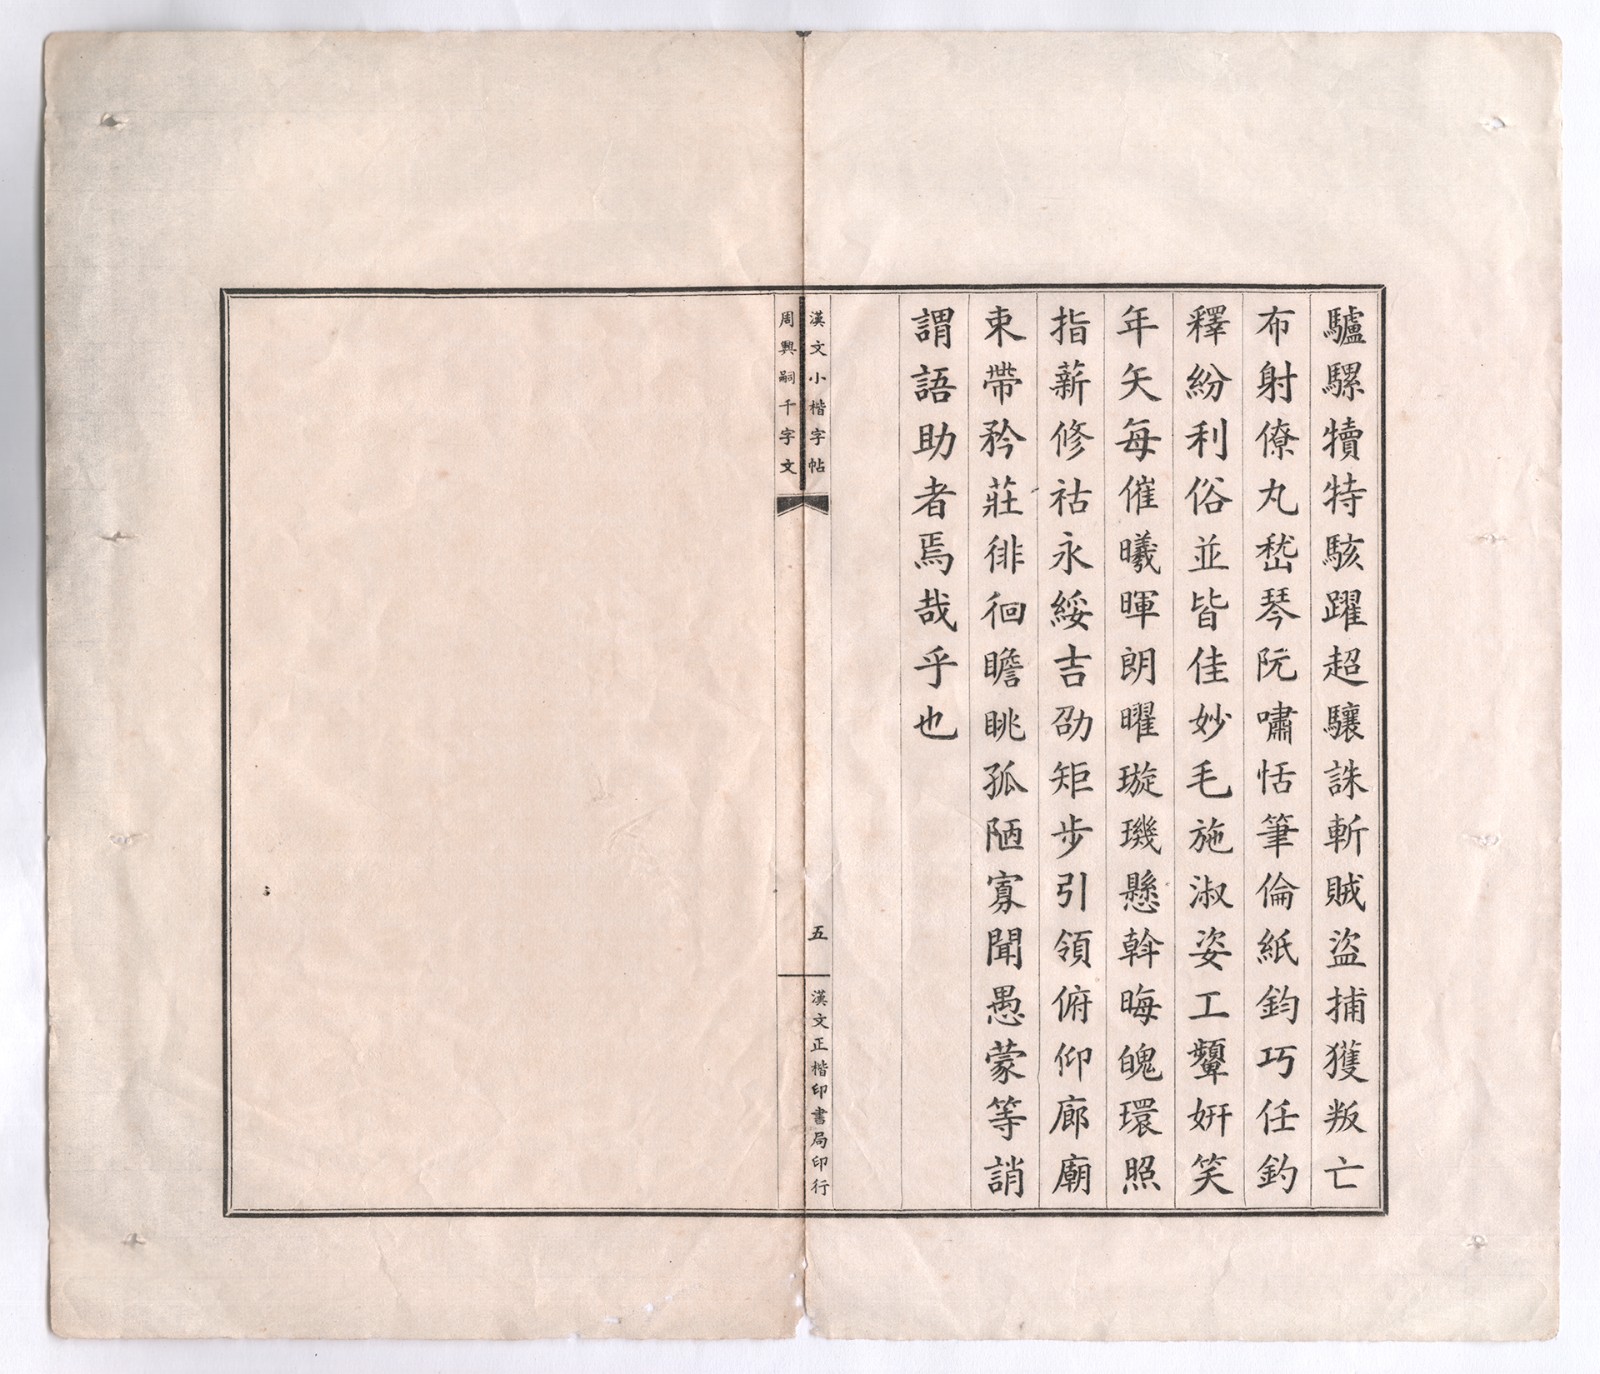 驢騾犢特駭躍超驤誅斬賊盜捕獲叛亡
布射僚丸嵇琴阮嘯恬筆倫紙鈞巧任釣
釋紛利俗並皆佳妙毛施淑姿工顰妍笑
年矢每催曦暉朗曜璇璣懸斡晦魄環照
指薪修祜永綏吉劭矩步引領俯仰廊廟
束帶矜莊徘徊瞻眺孤陋寡聞愚蒙等誚
謂語助者焉哉乎也
漢文小楷字帖
五
漢文正楷印書局印行
周興嗣千字文